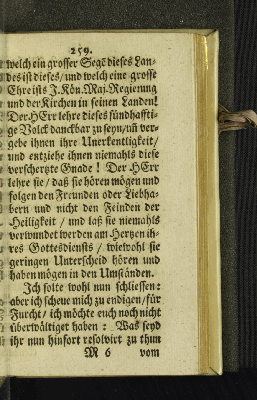 259.
welch ein grosser Segē dieses Lan-
des ist dieses/ und welch eine grosse
Ehre ists J. Kön. Maj. Regierung
und der Kirchen in seinen Landen!
Der HErr lehre dieses sündhaffti-
ge Volck danckbar zu seyn/ uñ ver-
gebe ihnen ihre Unerkentligkeit/
und entziehe ihnen niemahls diese
verschertzte Gnade! Der HErr
lehre sie/ daß sie hören mögen und
folgen den Freunden oder Liebha-
bern und nicht den Feinden der
Heiligkeit/ und laß sie niemahls
verwundet werden am Hertzen ih-
res Gottesdiensts/ wiewohl sie
geringen Unterscheid hören und
haben mögen in den Umständen.
Ich solte wohl nun schliessen:
aber ich scheue mich zu endigen/ für
Furcht/ ich möchte euch noch nicht
überwältiget haben: Was seyd
ihr nun hinfort resolvirt zu thun
M 6 vom